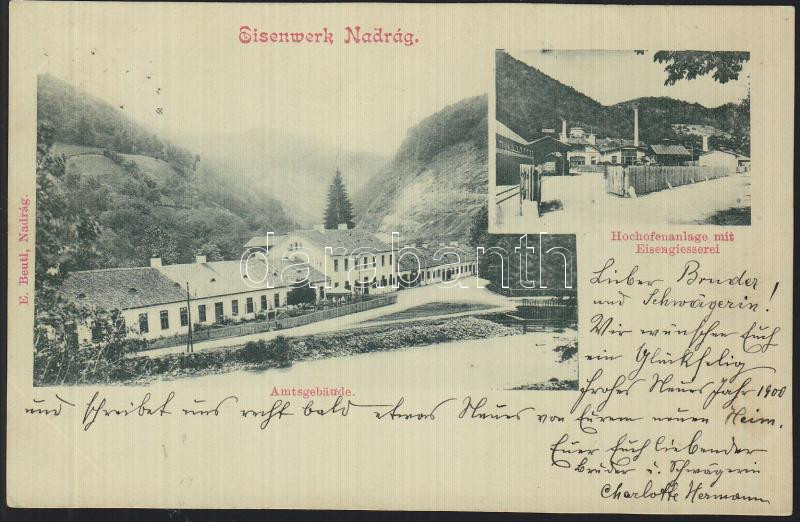 Eisenwerk Nadrág.
E. Beutl, Nadrág.
Hochofenanlage mit
Eisengiesserei
Amtsgebäude.
darabanth
Lieber Bruder
und Schwägerin!
Wir wünschen Euch
ein Glückselig
frohes Neues Jahr 1900
und schreibet uns recht bald etwas Neues von Eurem neuen Heim.
Euer Euch liebender
Bruder u. Schwägerin
Charlotte Hermann